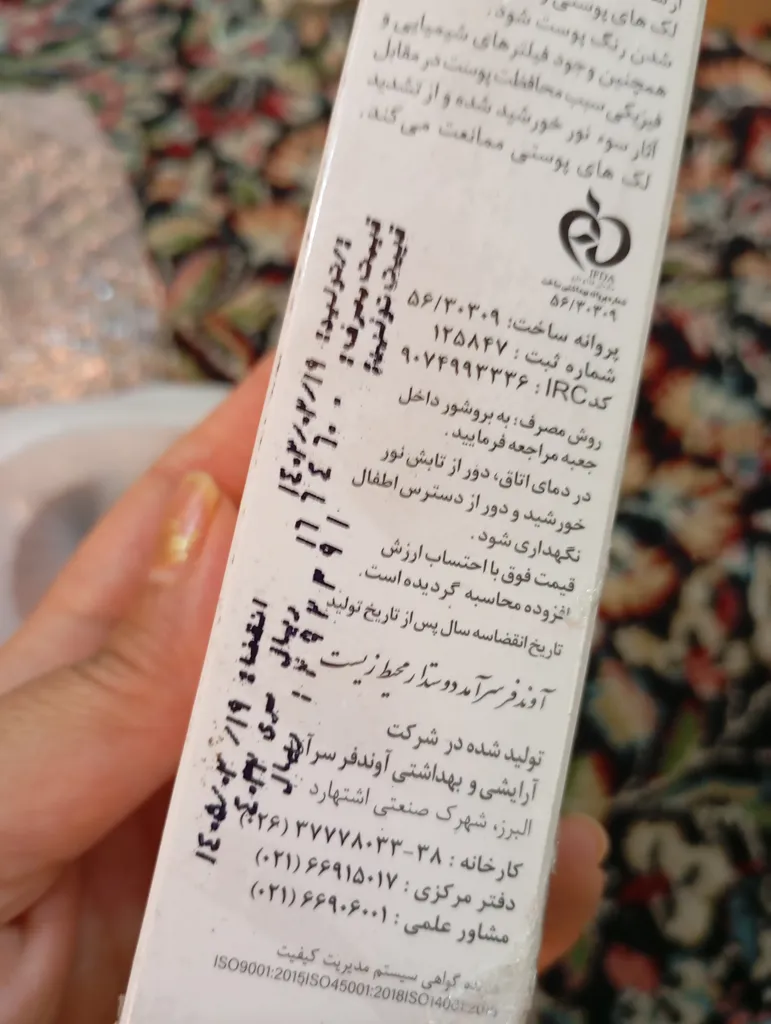 لک های پوستی و
شدن رنگ پوست شود.
همچنین وجود فیلترهای شیمیایی و
فیزیکی سبب محافظت پوست در مقابل
آثار سوء نور خورشید شده و از تشدید
لک های پوستی ممانعت می کند.
IFDA
۵۶/۳۰۳۰۹
پروانه ساخت: ۵۶/۳۰۳۰۹
شماره ثبت : ۱۲۵۸۴۷
کد IRC : ۹۰۷۴۹۹۳۳۳۶
روش مصرف: به بروشور داخل
جعبه مراجعه فرمایید.
در دمای اتاق، دور از تابش نور
خورشید و دور از دسترس اطفال
نگهداری شود.
قیمت فوق با احتساب ارزش
افزوده محاسبه گردیده است.
تاریخ انقضاسه سال پس از تاریخ تولید
آوندفر سرآمد دوستدار محیط زیست
تولید شده در شرکت
آرایشی و بهداشتی آوندفر سرآ
البرز، شهرک صنعتی اشتهارد
کارخانه : ۳۸-۳۷۷۷۸۰۳۳ (۰۲۶)
دفتر مرکزی : ۶۶۹۱۵۰۱۷ (۰۲۱)
مشاور علمی : ۶۶۹۰۶۰۰۱ (۰۲۱)
گواهی سیستم مدیریت کیفیت
ISO9001:2015|ISO45001:2018|ISO14001:2015
ت/تولید: ۱۴۰۲/۰۳/۱۹ انقضا: ۱۴۰۵/۰۳/۱۹
قیمت مصرف: ریال
قیمت تولید: ریال